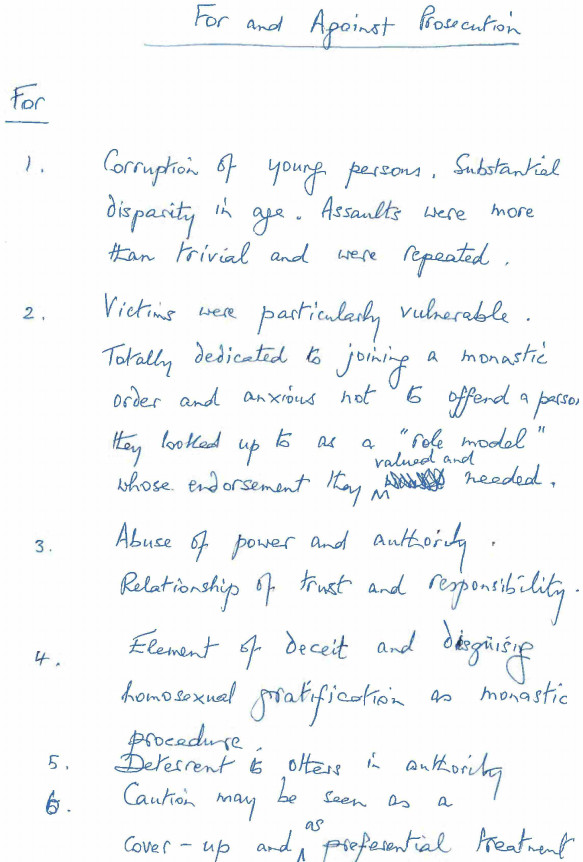 For and Against Prosecution
For
1. Corruption of young persons. Substantial
disparity in age. Assaults were more
than trivial and were repeated.
2. Victims were particularly vulnerable.
Totally dedicated to joining a monastic
order and anxious not to offend a person
they looked up to as a "role model"
valued and
whose endorsement they needed.
3. Abuse of power and authority.
Relationship of trust and responsibility.
4. Element of deceit and disguising
homosexual gratification as monastic
procedure.
5. Deterrent to others in authority
6. Caution may be seen as a
as
cover-up and preferential treatment